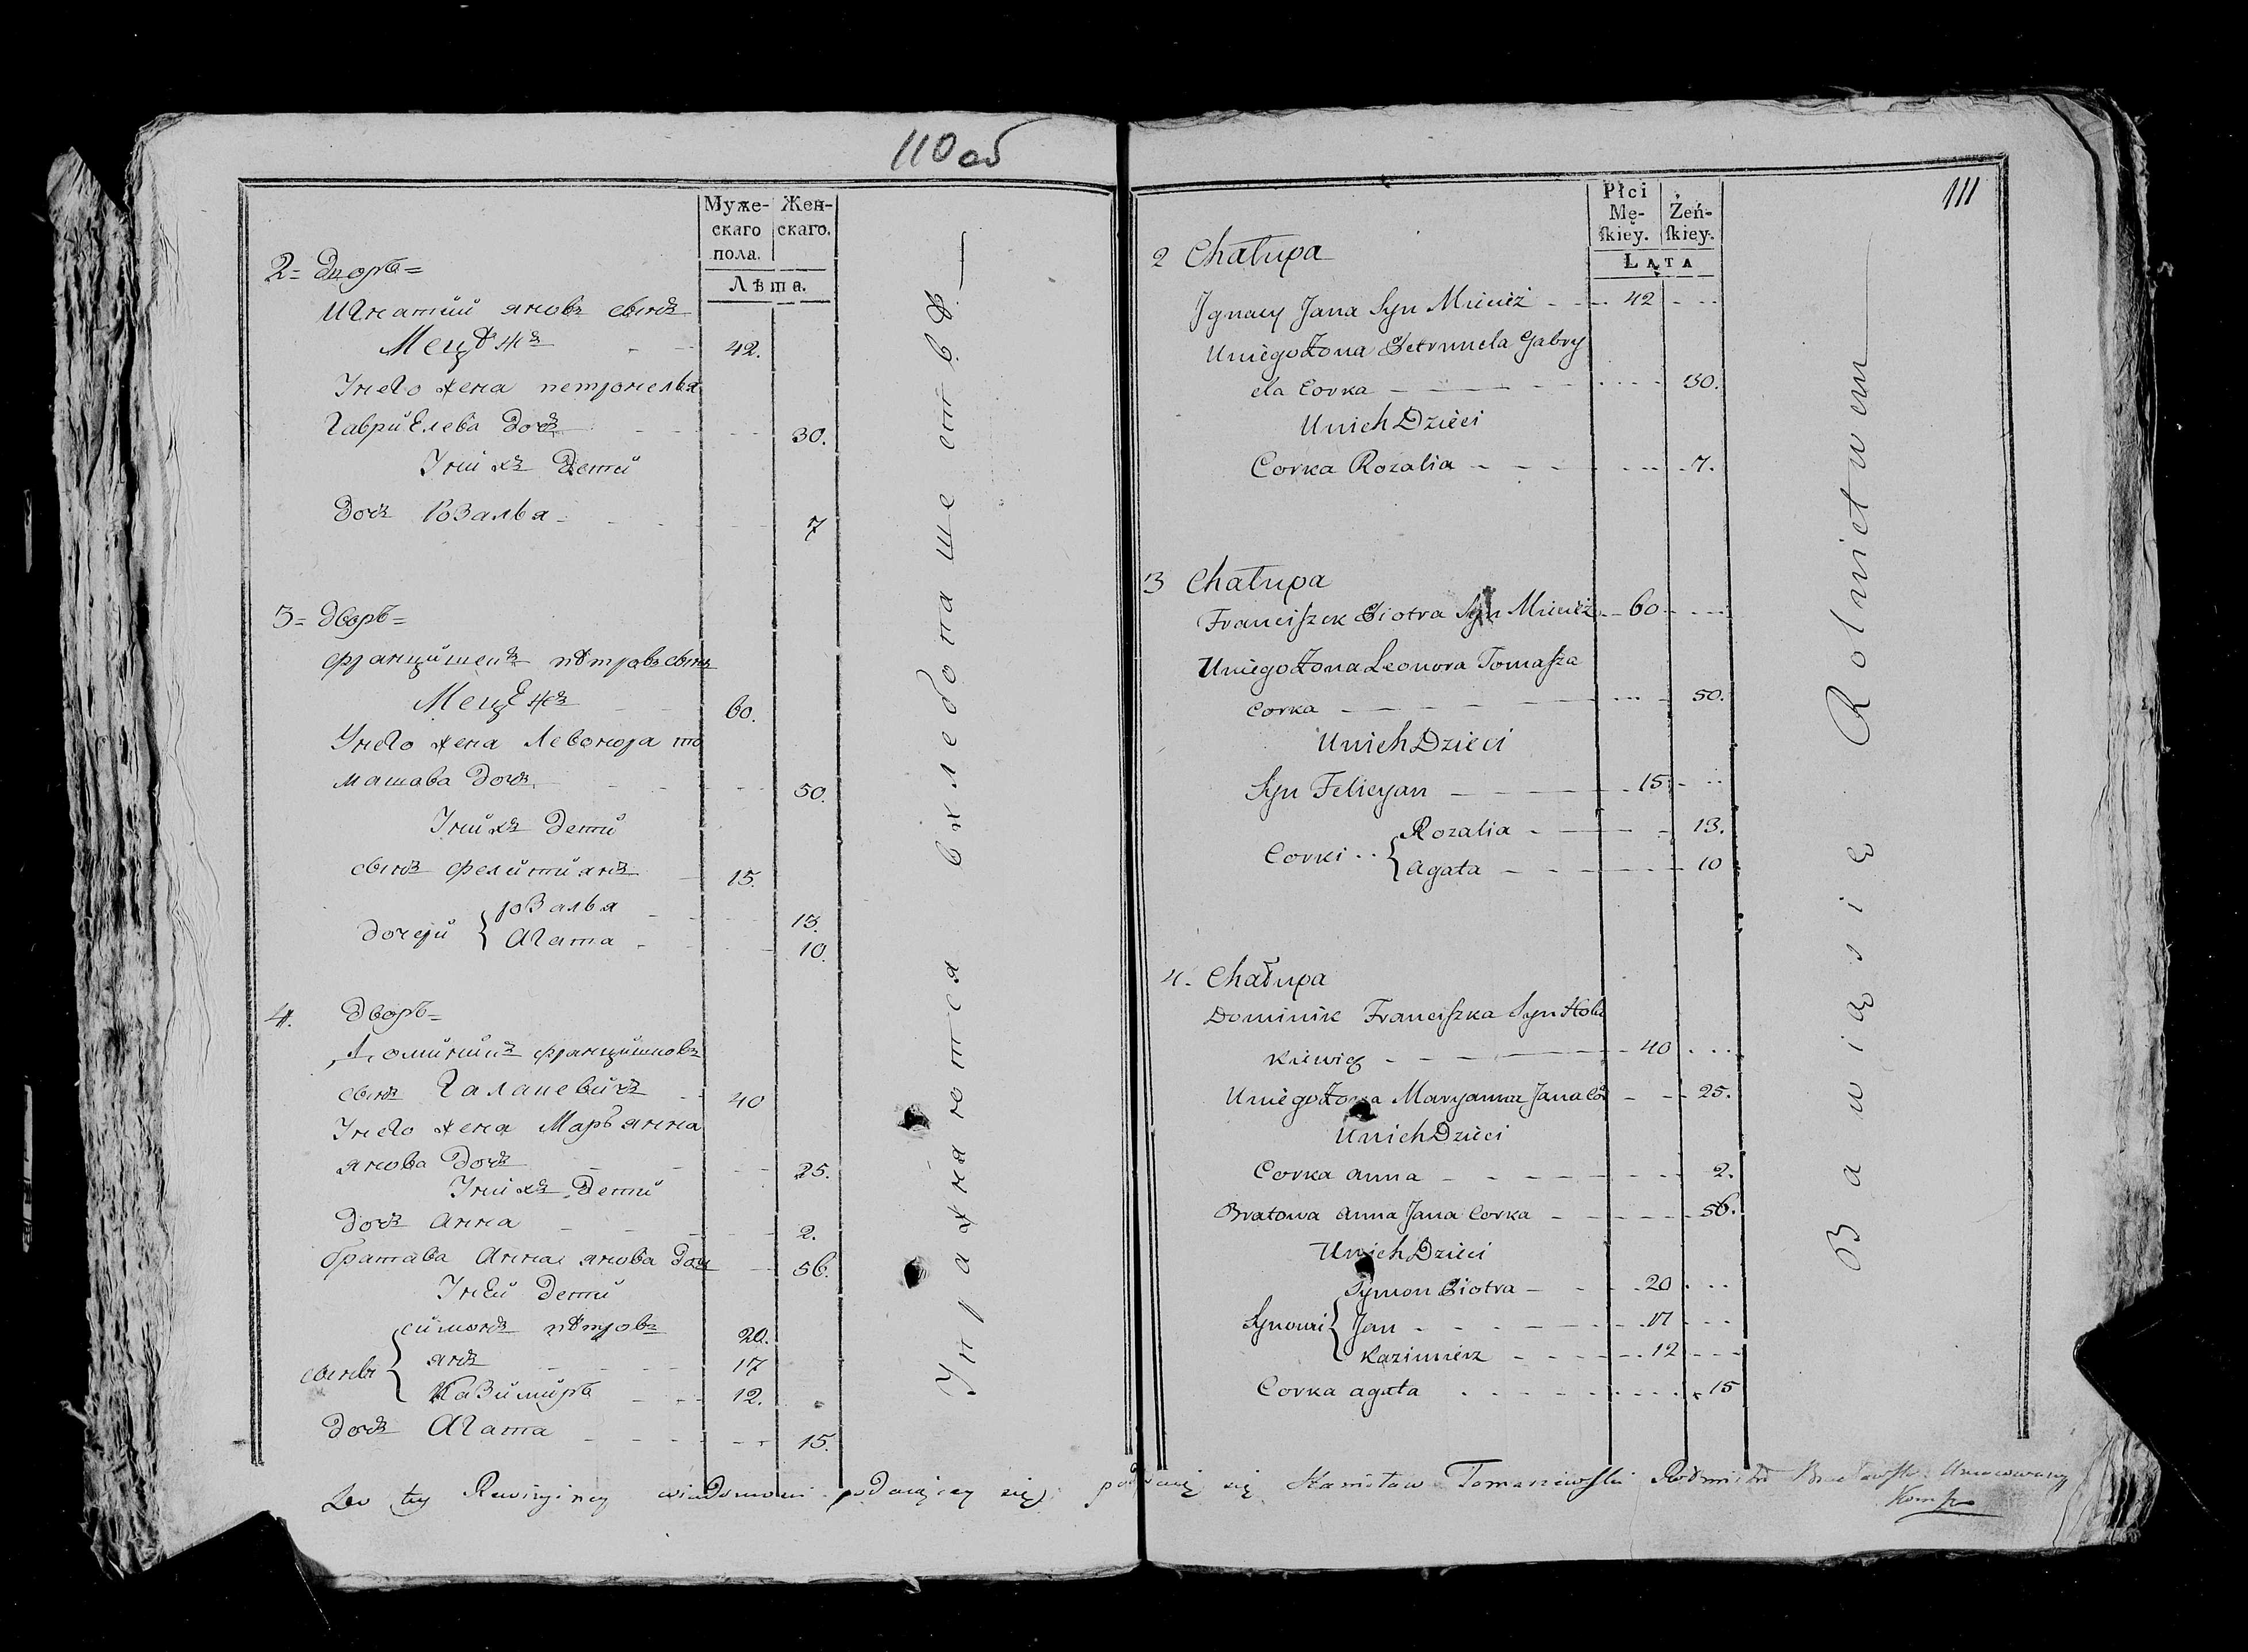 110 об
Муже-
скаго
пола.
Жен-
скаго.
Лѣта.
2= Дворъ=
Игнатий яновъ сынъ
Мецѣжъ 42.
Унего жена петронеля
Гавриелева дочъ 30.
Унихъ Дети
Дочъ Розалья 7
3= Дворъ=
францишекъ пѣтровъ сынъ
МецЕжъ 60.
Унего жена Левонора то
машава дочъ 50.
Унихъ Дети
сынъ фелитиянъ 15.
дочери { розалья 13.
Агата 10.
4. Дворъ=
Доминикъ францишковъ
сынъ 40
Унего жена Марьянна
янова дочъ 25.
Унихъ Дети
Дочъ Анна 2.
братава Анна янова доч 56.
Уней Дети
сыны { симонъ пѣтровъ 20.
янъ 17
Казимиръ 12.
Дочъ Агата 15.
Упражняются вхлебопашествѣ.
111
Płci
Mę-
ſkiey.
Żeń-
ſkiey.
Lata
2 Chałupa
Jgnacy Jana Syn Micież 42
Uniego Żona Petrunela Gabry
ela Corka 30.
Unich Dzieci
Corka Rozalia 7.
3 Chałupa
Franciſzek Piotra Syn Micież 60
Uniego Żona Leonora Tomaſza
Corka 50.
Unich Dzieci
Syn Felicyan 15
Corki { Rozalia 13.
Agata 10
4. Chałupa
Dominik Franciſzka Syn Hoła
kiewicz 40
Uniego Żona Maryanna Jana Cór 25.
Unich Dzieci
Corka Anna 2.
Bratowa Anna Jana Corka 56.
Unich Dzieci
Synowie { Symon Piotra 20
Jan 17
Kazimierz 12
Corka Agata 15
Bawią się Rolnictwem
Do tey Rewizyiney wiadomosci podaiącey się podpisuię się Stanisław Tomaszewſki